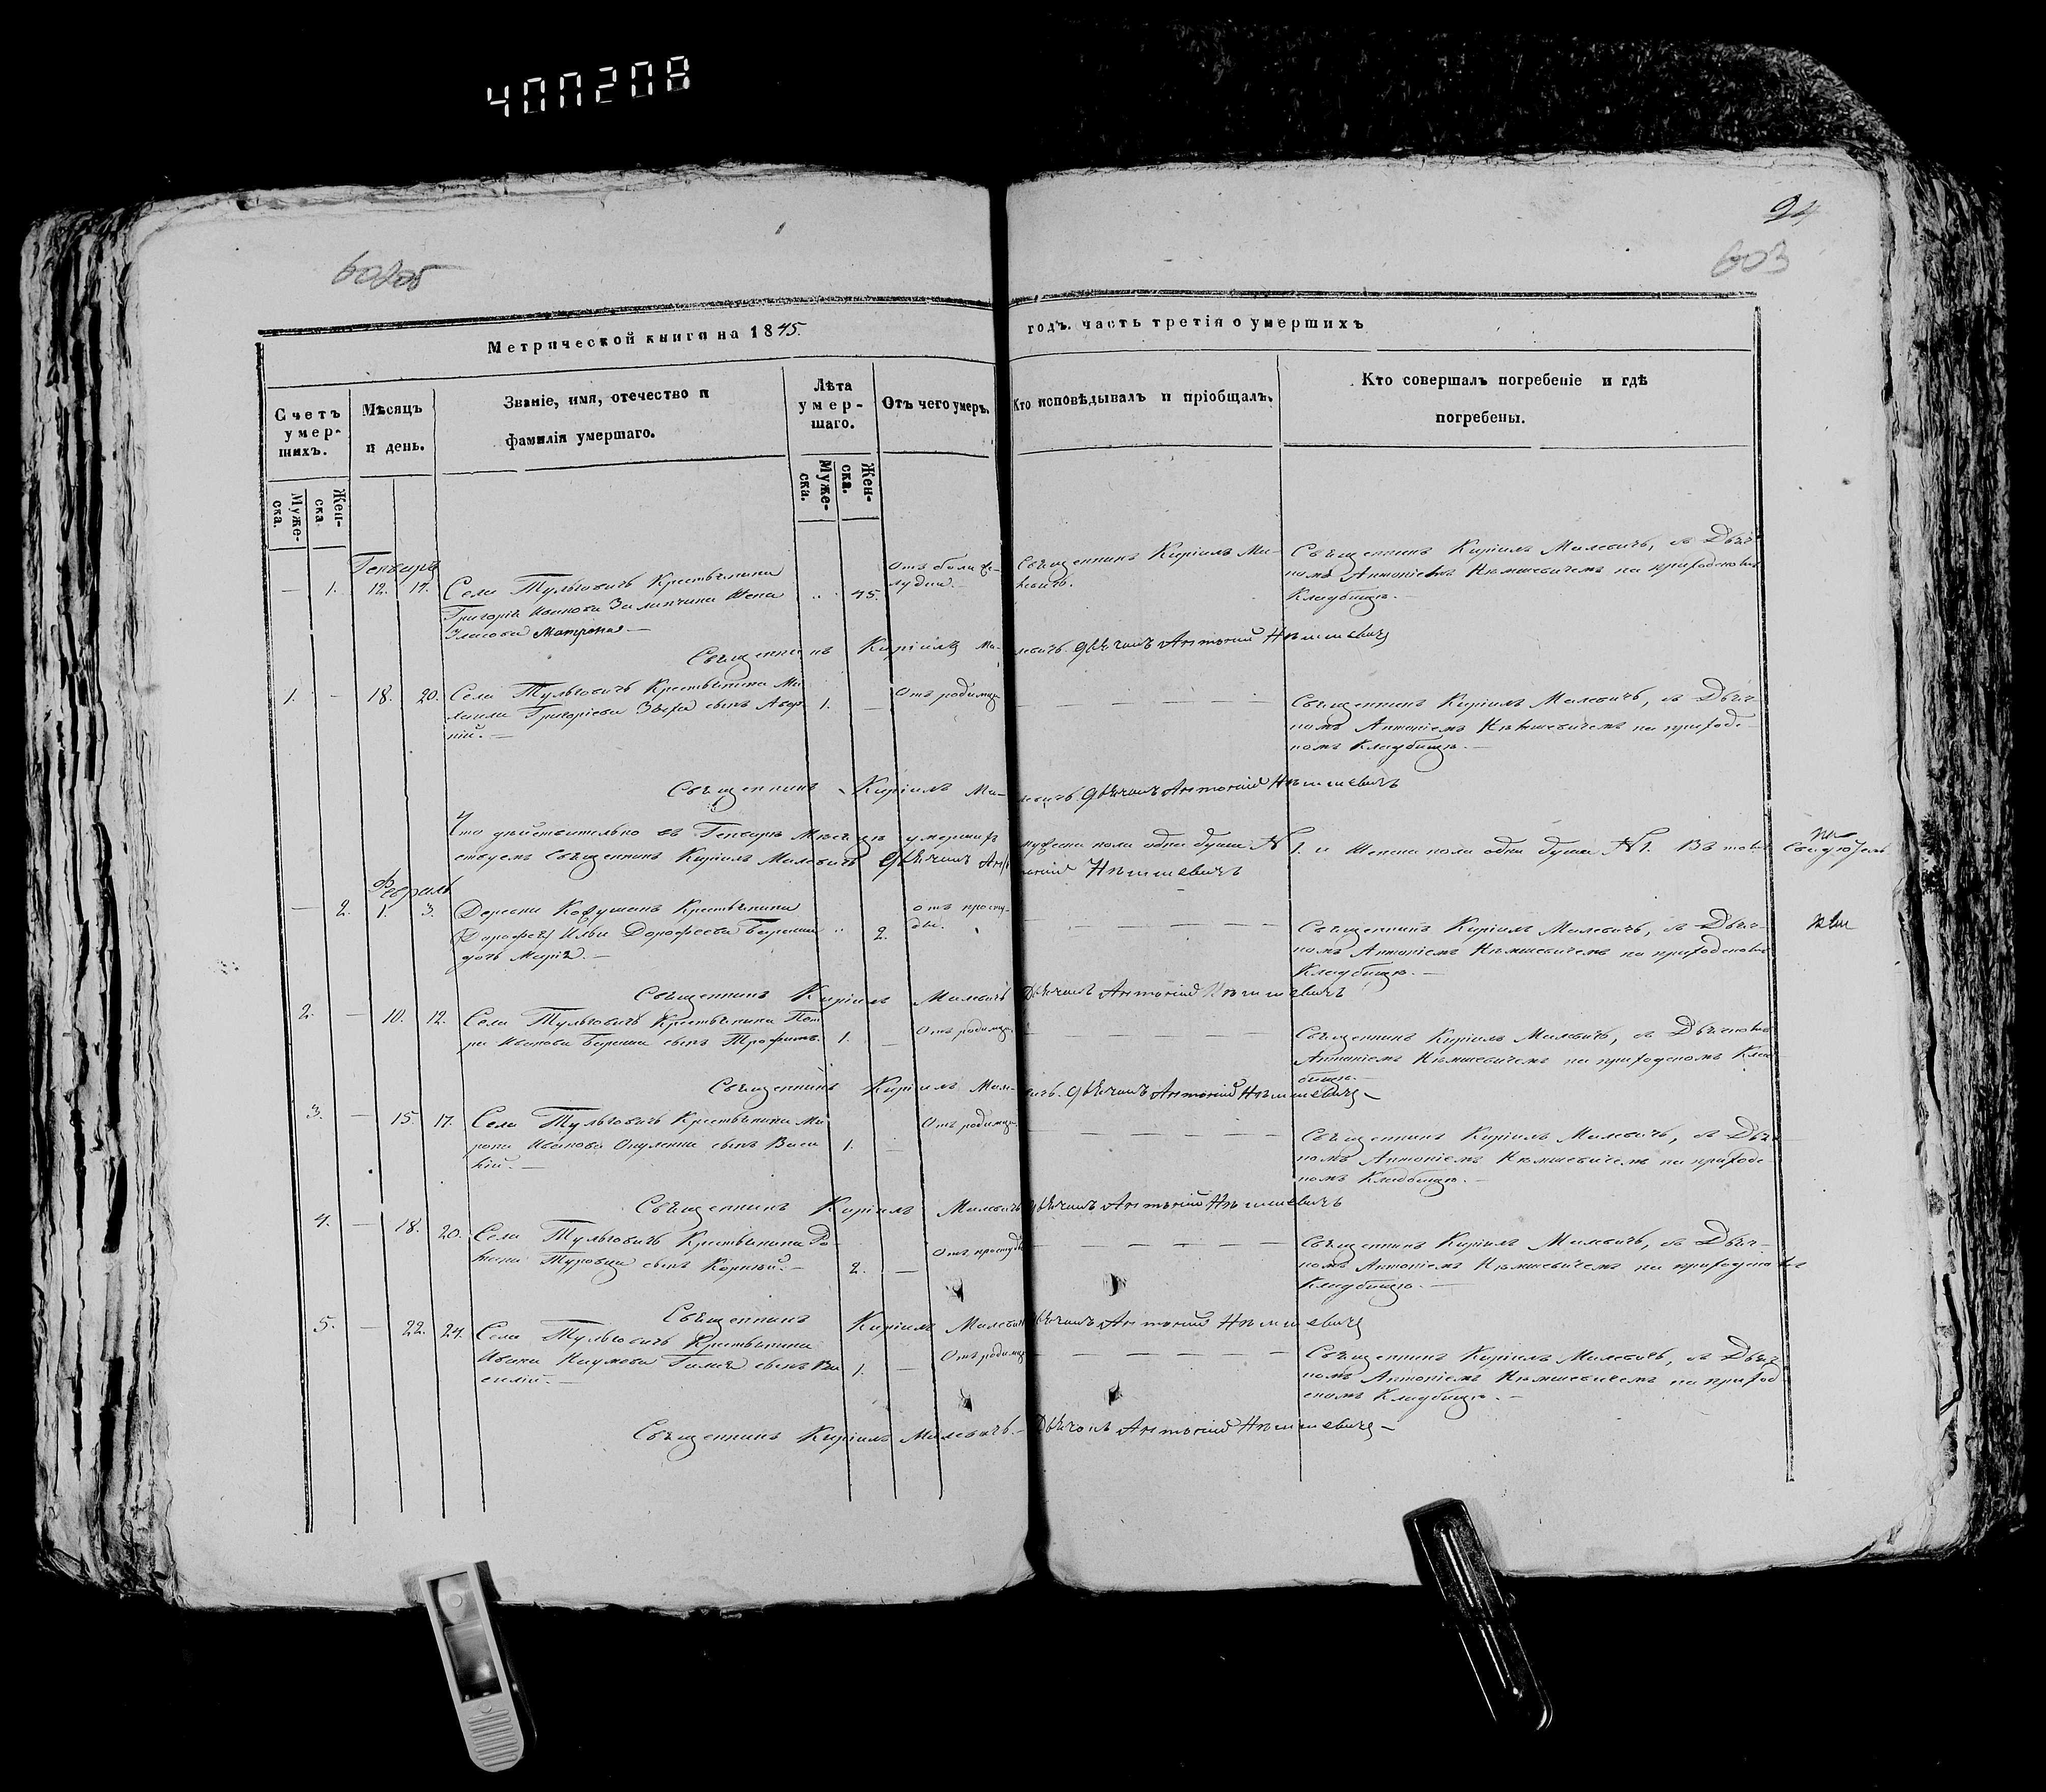 400208
94
603
Метрической книги на 1845.
годъ. часть третія о умершихъ
Счетъ умершихъ.
Мѣсяцъ и день.
Званіе, имя, отечество и фамилія умершаго.
Лѣта умершаго.
Отъ чего умеръ.
Кто исповѣдывалъ и пріобщалъ.
Кто совершалъ погребеніе и гдѣ погребены.
Муже-ска.
Жен-ска.
Муже-ска.
Жен-ска.
Генваря
— 1. 12. 14. Села Тульговичъ Крестьянина
Григорія Иванова жена
Матрона —
45.
Отъ боли же-
лудка. —
Священникъ Киріилъ Ми-
левичъ.
Священникъ Киріилъ Милевичъ, съ Дьяч-
комъ Антоніемъ Нѣмшевичемъ на приходскомъ
Кладбищѣ. —
Священникъ Киріилъ Ми-левичъ. Дьячокъ Антоній Нѣмшевичъ
1. — 18. 20. Села Тульговичъ Крестьянина Ми
Григоріева сынъ
ній. —
1. —
Отъ родимца
Священникъ Киріилъ Милевичъ, съ Дьяч-
комъ Антоніемъ Нѣмшевичемъ на приход-
комъ Кладбищѣ. —
Священникъ Киріилъ Ми-левичъ. Дьячокъ Антоній Нѣмшевичъ
Что действительно въ Генварѣ Мѣсяцѣ умершихъ мужеска пола одна душа N 1. и Женска пола одна душа N 1. Въ томъ
ствуемъ Священникъ Киріилъ Милевичъ Дьячокъ Антоній Нѣмшевичъ
Февраль
— 2. 1. 3. Деревни Крестьянина
Ильи Дорофеева
дочь Марія. —
2.
отъ просту-
ды.
Священникъ Киріилъ Милевичъ, съ Дьяч-
комъ Антоніемъ Нѣмшевичемъ на приходскомъ
Кладбищѣ. —
Священникъ Киріилъ Милевичъ Дьячокъ Антоній Нѣмшевичъ
2. — 10. 12. Села Тульговичъ Крестьянина Пет
ра Иванова сынъ Трофимъ.
1. —
Отъ родимца
Священникъ Киріилъ Милевичъ, съ Дьячкомъ
Антоніемъ Нѣмшевичемъ на приходскомъ Клад
бищѣ. —
Священникъ Киріилъ Милевичъ. Дьячокъ Антоній Нѣмшевичъ —
3. — 15. 17. Села Тульговичъ Крестьянина Ми
рона Иванова сынъ Васи
лій. —
1. —
Отъ родимца
Священникъ Киріилъ Милевичъ, съ Дьяч-
комъ Антоніемъ Нѣмшевичемъ на приход-
комъ Кладбищѣ. —
Священникъ Киріилъ Милевичъ Дьячокъ Антоній Нѣмшевичъ
4. — 18. 20. Села Тульговичъ Крестьянина
сынъ Корнѣй. —
2. —
Отъ простуды
Священникъ Киріилъ Милевичъ, съ Дьяч-
комъ Антоніемъ Нѣмшевичемъ на приходскомъ
Кладбищѣ. —
Священникъ Киріилъ Милевичъ Дьячокъ Антоній Нѣмшевичъ
5. — 22. 24. Села Тульговичъ Крестьянина
Ивана Наумова сынъ Ва
силій. —
1. —
Отъ родимца
Священникъ Киріилъ Милевичъ, съ Дьяч
комъ Антоніемъ Нѣмшевичемъ на приход
скомъ Кладбищѣ. —
Священникъ Киріилъ Милевичъ. — Дьячокъ Антоній Нѣмшевичъ —